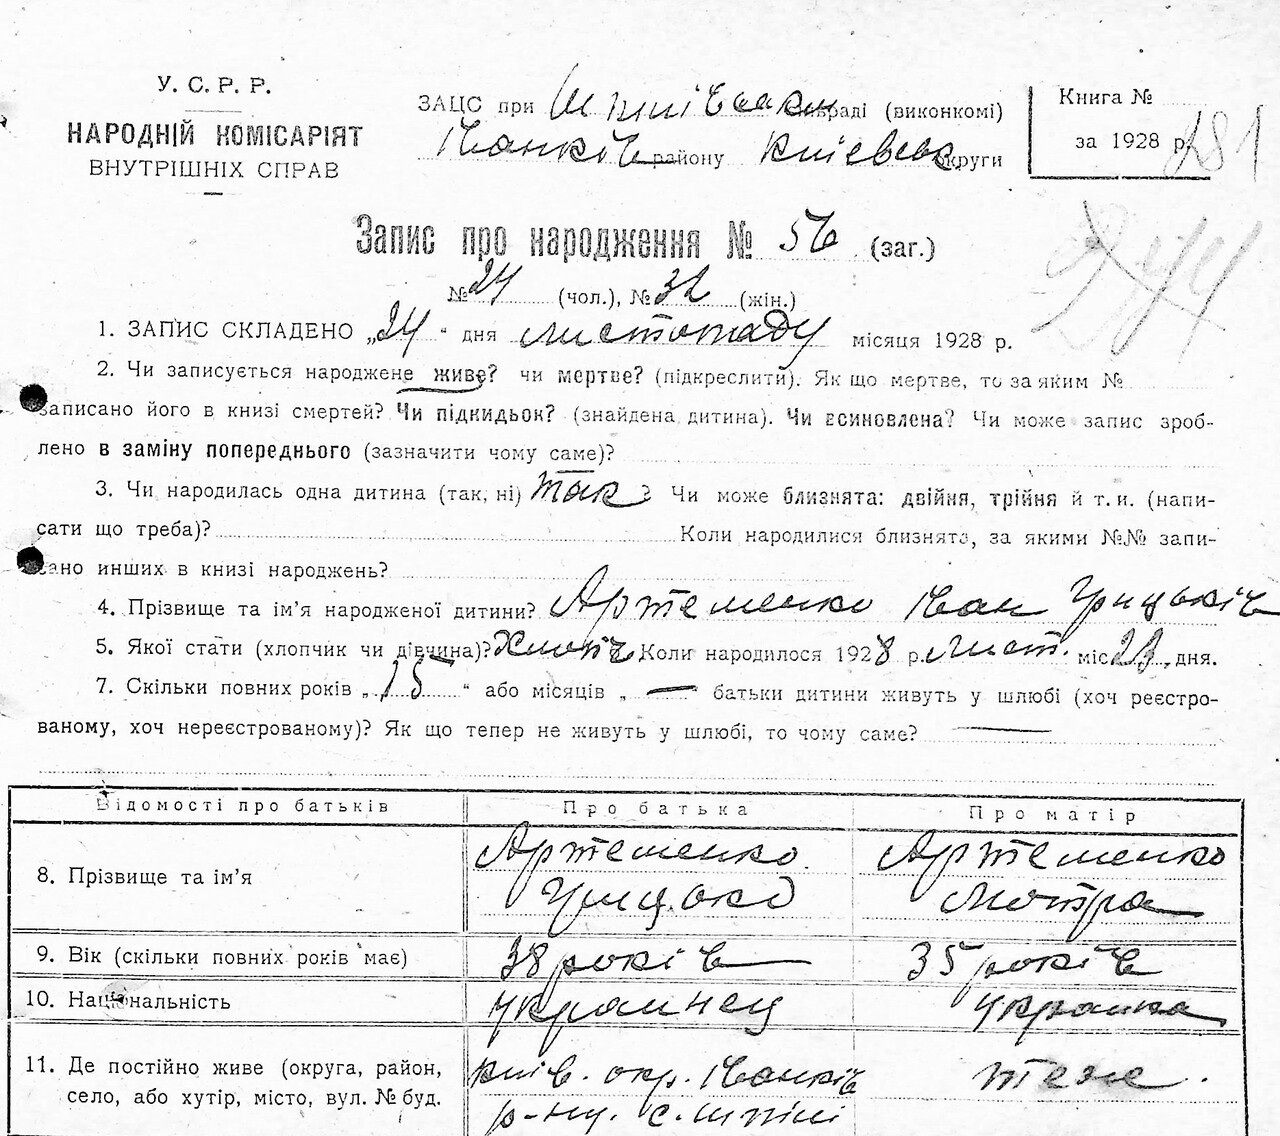 У. С. Р. Р.
НАРОДНІЙ КОМІСАРІЯТ
ВНУТРІШНІХ СПРАВ
ЗАЦС при Шпилівськи раді (виконкомі)
Іванків району Київськ округи
Книга №
за 1928 р.
281
244
Запис про народження № 56 (заг.)
№ 24 (чол.), № 32 (жін.)
1. ЗАПИС СКЛАДЕНО „24" дня листопаду місяця 1928 р.
2. Чи записується народжене живе? чи мертве? (підкреслити). Як що мертве, то за яким №
записано його в книзі смертей? Чи підкидьок? (знайдена дитина). Чи всиновлена? Чи може запис зроб-
лено в заміну попереднього (зазначити чому саме)?
3. Чи народилась одна дитина (так, ні) так? Чи може близнята: двійня, трійня й т. и. (напи-
сати що треба)? Коли народилися близнята, за якими №№ запи-
сано инших в книзі народжень?
4. Прізвище та ім'я народженої дитини? Артеменко Іван Грицьків
5. Якої стати (хлопчик чи дівчина)? Хлопч Коли народилося 1928 р. лист. міс 23 „ дня.
7. Скільки повних років „15" або місяців „—" батьки дитини живуть у шлюбі (хоч реєстро-
ваному, хоч нереєстрованому)? Як що тепер не живуть у шлюбі, то чому саме? —
Відомості про батьків Про батька Про матір
8. Прізвище та ім'я Артеменко Грицько Артеменко Мотра
9. Вік (скільки повних років має) 38 років 35 років
10. Національність Украинец Украинка
11. Де постійно живе (округа, район, Київ. окр. Іванків теж.
село, або хутір, місто, вул. № буд. р-ну. с. Шпилі